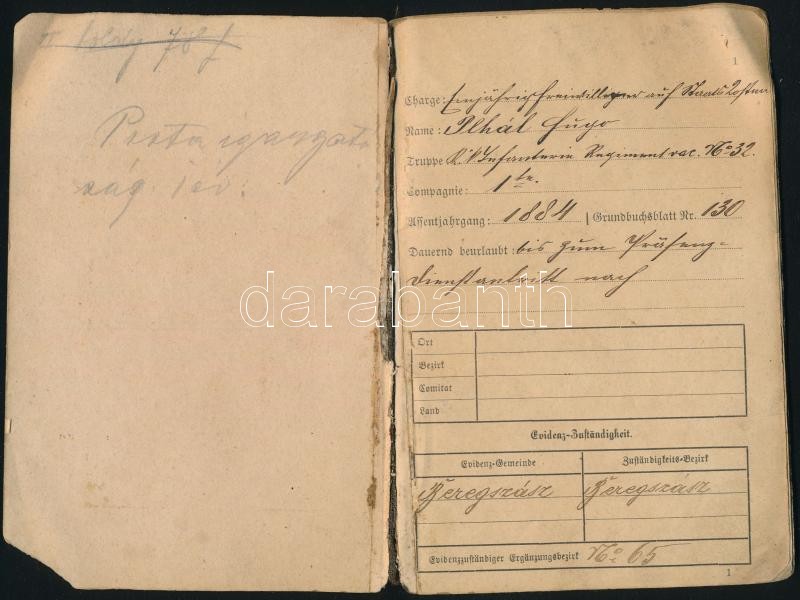 II Toldy
Posta igazgató
ság
1
Charge: Einjährig freiwilliger auf Staats Kosten
Name: Plhál Hugo
Truppe K. k. Infanterie Regiment vac. No 32.
Compagnie: 1te.
Assentjahrgang: 1884 | Grundbuchsblatt Nr. 130
Dauernd beurlaubt: bis zum Präsenz-
dienstantritt nach
darabanth
Ort
Bezirk
Comitat
Land
Evidenz-Zuständigkeit.
Evidenz-Gemeinde Zuständigkeits-Bezirk
Beregszász Beregszász
Evidenzzuständiger Ergänzungsbezirk No 65
1